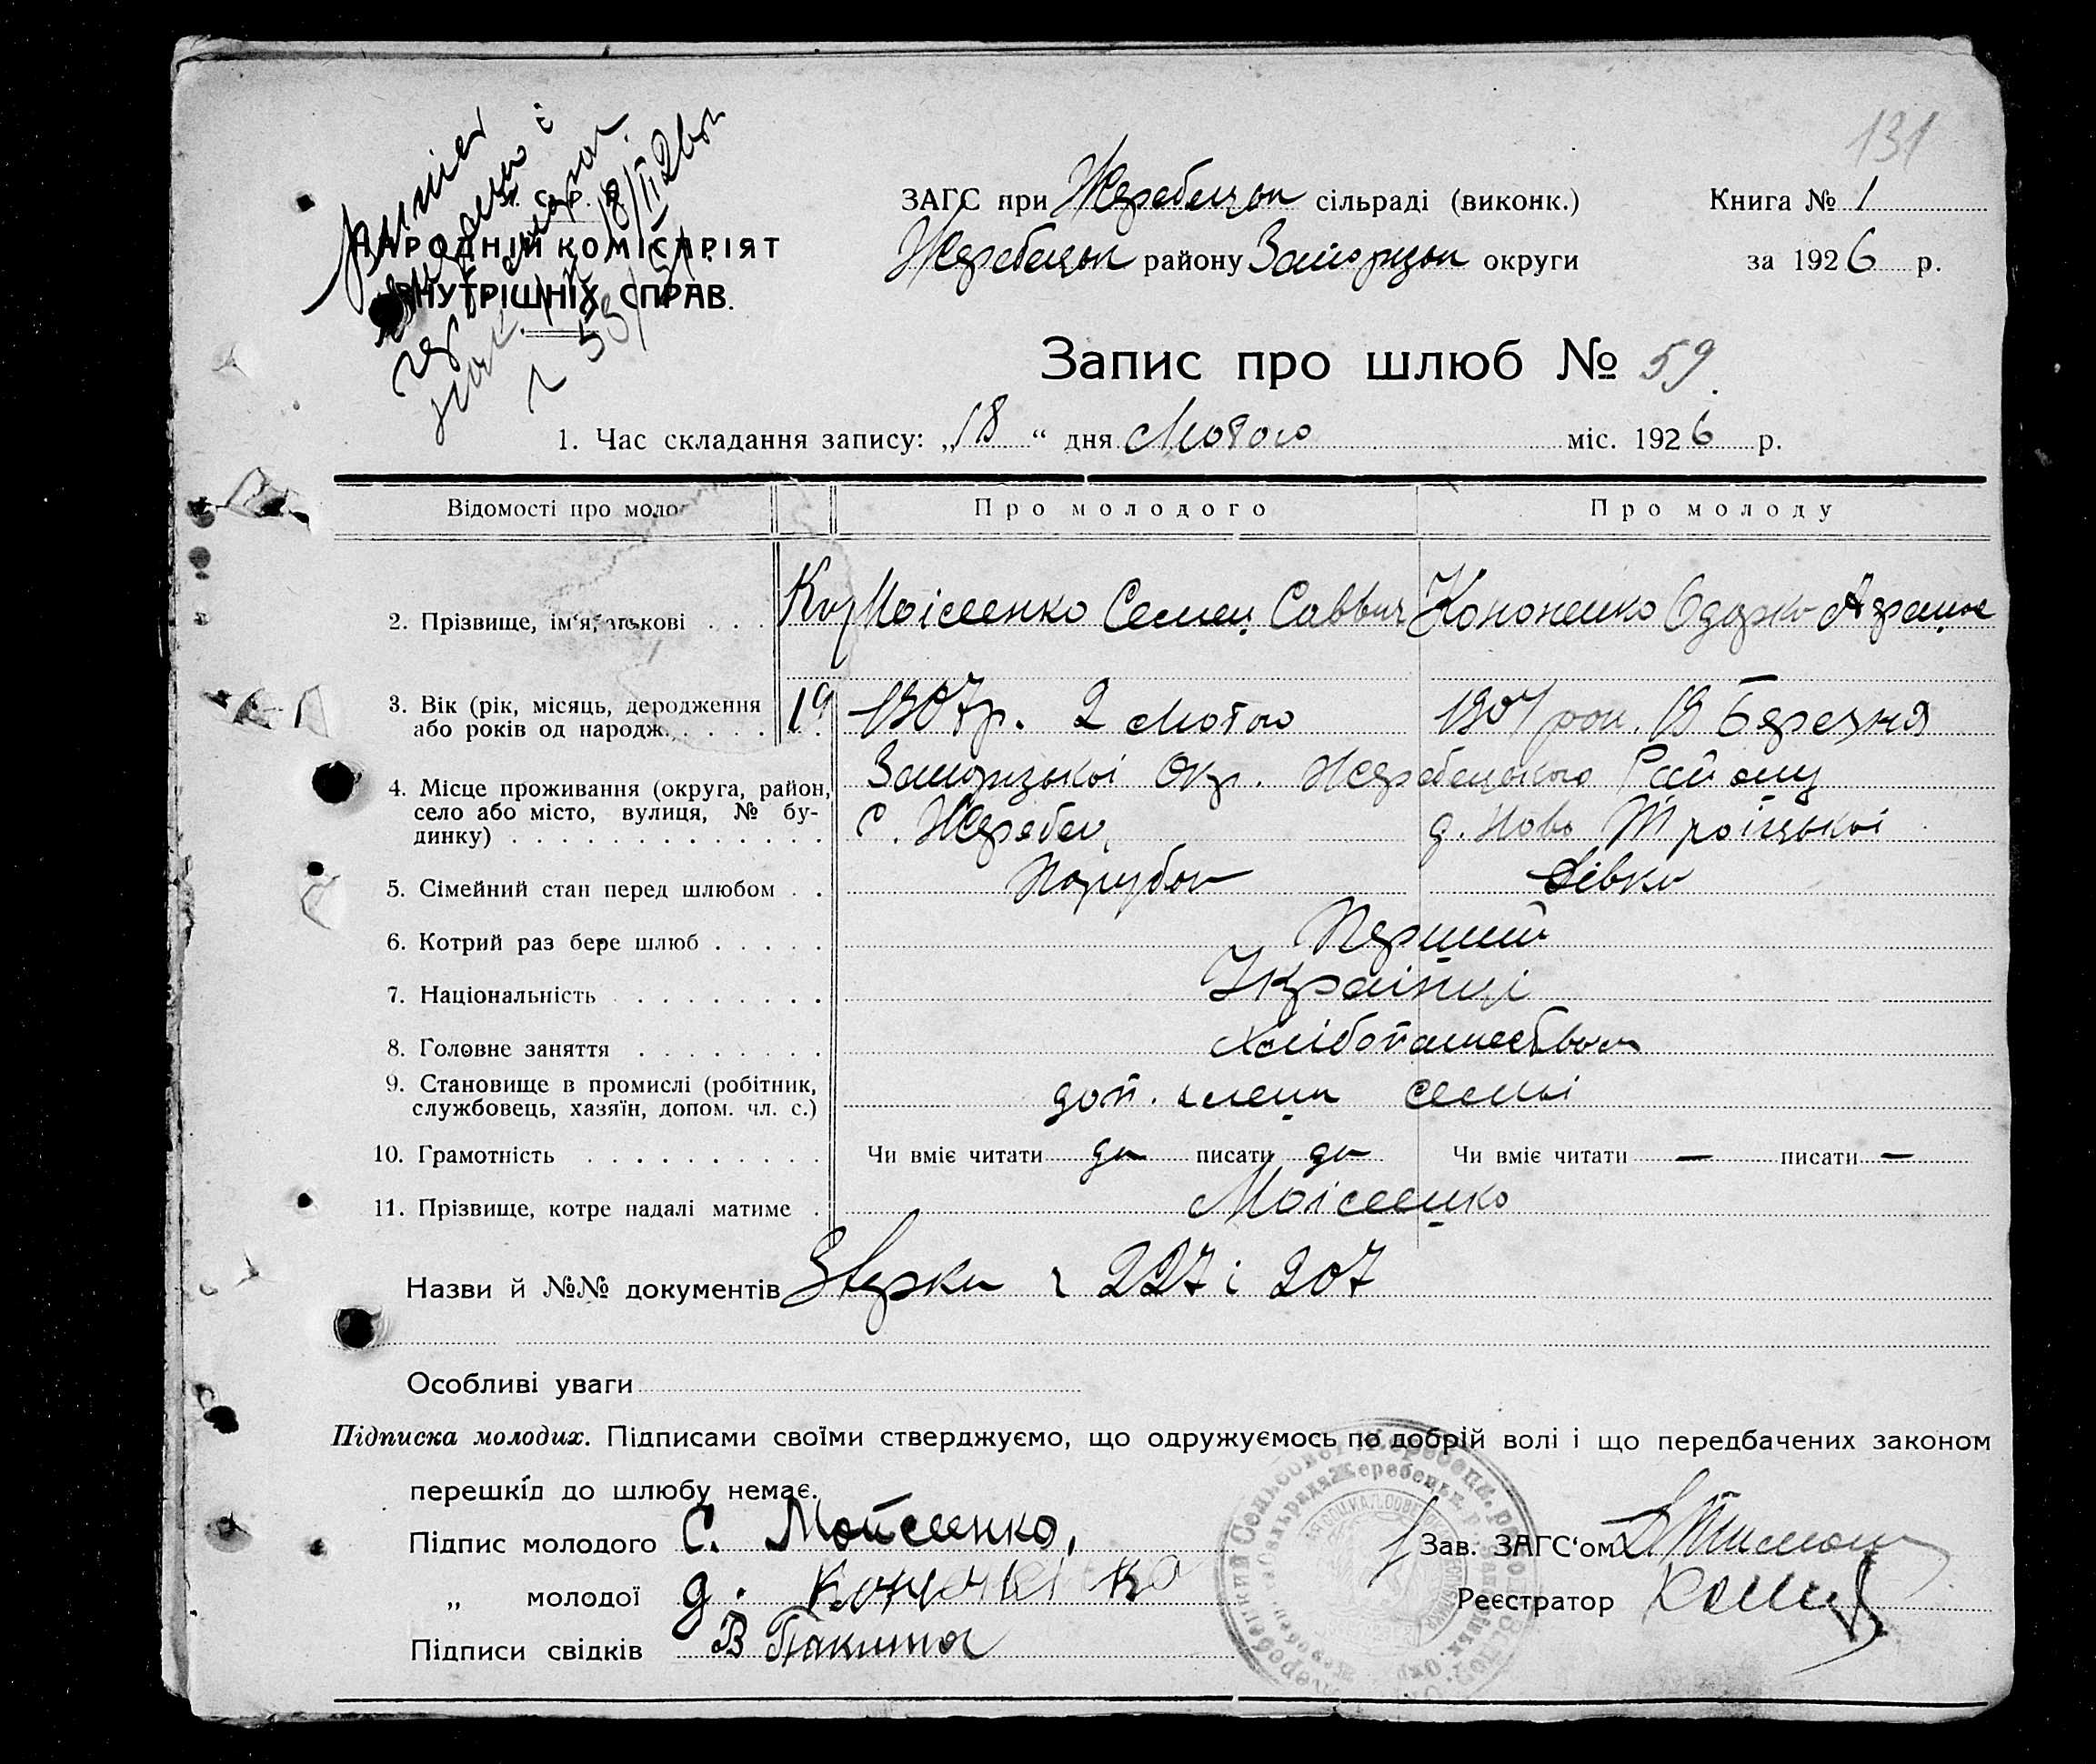 131
ЗАГС при Жеребецьк сільраді (виконк.) Книга № 1
Жеребецьк району Запоріцьк округи за 1926 р.
НАРОДНІЙ КОМІСАРІЯТ
ВНУТРІШНІХ СПРАВ.
18/II 26
Запис про шлюб № 59.
1. Час складання запису: „18“ дня Лютого міс. 1926 р.
Відомості про моло Про молодого Про молоду
2. Прізвище, ім'я, атькові . . . Моісеенко Семен Саввич Кононенко Одарка
3. Вік (рік, місяць, деродження 19 1907р. 2 Лютого 1907 рок. 19 Березня
або років од народж. . . . . .
Запорізькоі Окр. Жеребецького Району
4. Місце проживання (округа, район,
село або місто, вулиця, № бу- С. Жеребец д. Ново Троіцькоі
динку) . . . . . . . . . . . . .
5. Сімейний стан перед шлюбом . . Парубок Дівка
6. Котрий раз бере шлюб . . . . . Перший
7. Національність . . . . . . . . . Українці
8. Головне заняття . . . . . . . . Хлібопашеством
9. Становище в промислі (робітник,
службовець, хазяїн, допом. чл. с.) доп. член семьі
10. Грамотність . . . . . . . . . . Чи вміє читати да писати да Чи вміє читати — писати —
11. Прізвище, котре надалі матиме . Моісеенко
Назви й №№ документів 227 і 207
Особливі уваги
Підписка молодих. Підписами своїми стверджуємо, що одружуємось по добрій волі і що передбачених законом
перешкід до шлюбу немає.
Підпис молодого С. Мойсеенко,
Зав. ЗАГС'ом
„ молодої д. Кононенко
Реєстратор
Підписи свідків В